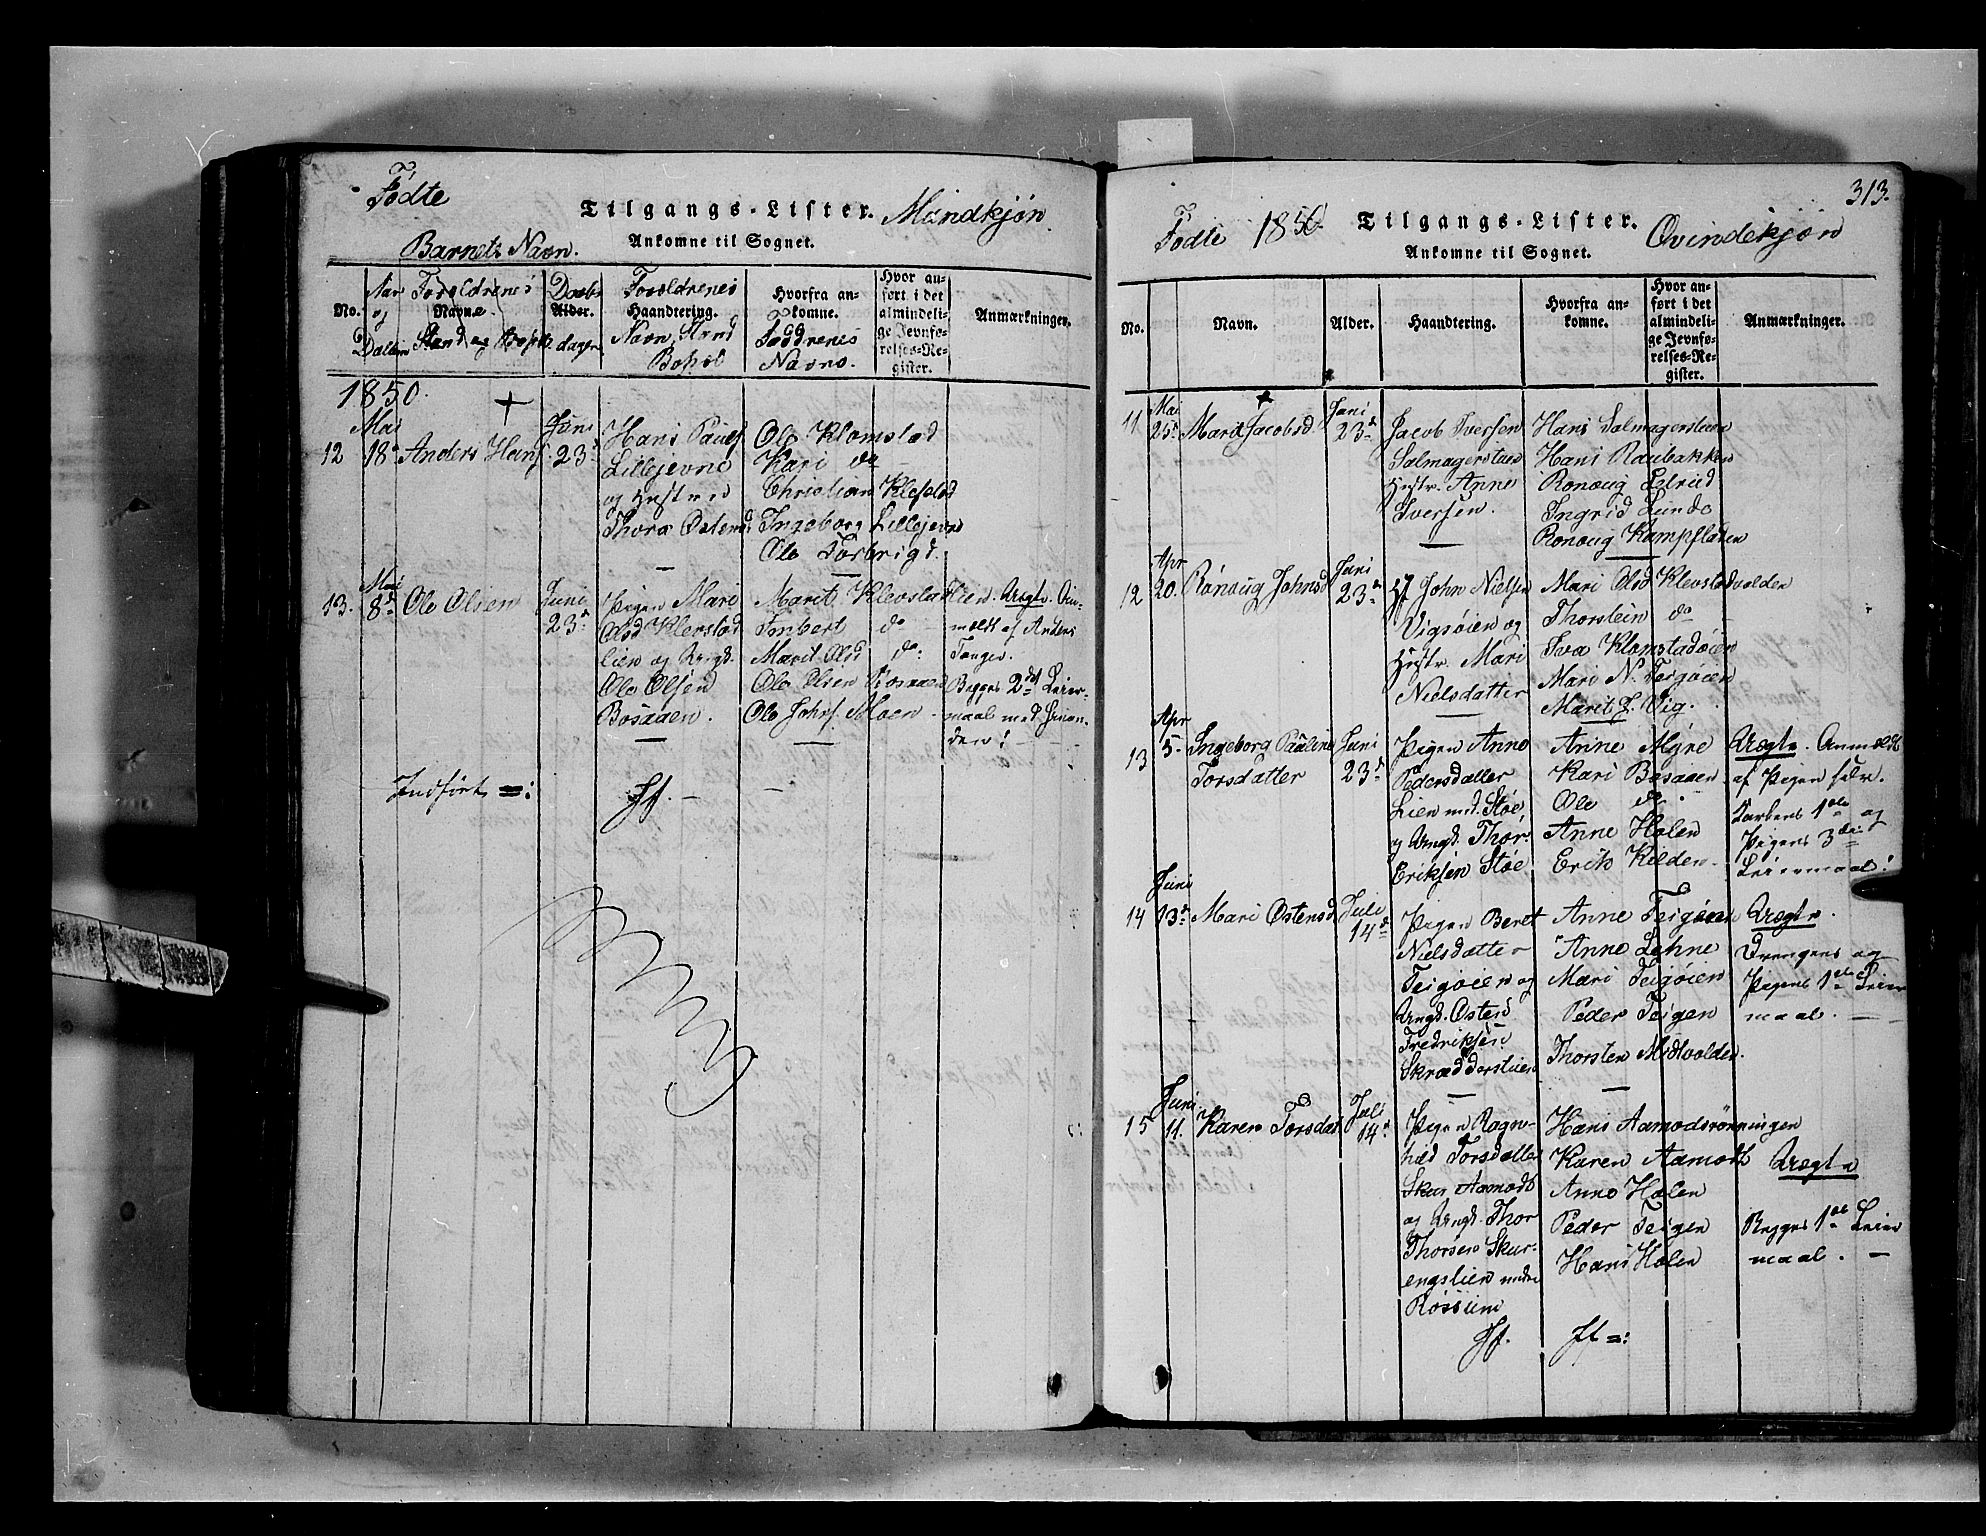 Fødte
Tilgangs-Lister. Mandkjøn.
Ankomne til Sognet.
Barnets Navn.
No.
Aar og Datum
Forældrenes
Navne.
Stand og
Daabs
Alder.
dagen
Forældrenes
Haandtering.
Navn, Stand
Bopæl
Hvorfra ankomne.
Faddrenes
Navne.
Hvor anført i det almindelige Jevnførelses-Register.
Anmærkninger.
1850.
Mai
12 18d Anders Hans. Juni 23d
Hans Pauls.
Lillejevne
og Hustrue
Thora Ostensd.
Ole Klomstad
Kari do
Christian Klefstad
Ingeborg Lillejevne
Ole
Mai
13. 8d Ole Olsen Juni 23d
Pigen Mari
Olsd Klevstad
lien og Ungk.
Ole Olsen
Bosaaen.
Marit Klevstadlien.
Imbert do
Marit Olsd do:
Ole Olsen Bosaaen
Ole Johns. Moen.
Uægte. An-
meldt af Anders
Tanger.
Begges 2det Leier-
maal med hinan-
den!
Indført =: Hf.
313.
Fødte 1850. Tilgangs-Lister. Qvindekjøn
Ankomne til Sognet.
No.
Navn.
Alder.
Haandtering.
Hvorfra ankomne.
Hvor anført i det almindelige Jevnførelses-Register.
Anmærkninger.
Mai
11 25d Marit Jacobsd. Juni 23d
Jacob Iversen
Salmagerstuen
Hustr. Anne
Iversen.
Hans Salmagerstuen
Hans Raubakken
Ronoug
Ingrid Lunde
Ronoug Kampfladen
Apr
12 20. Rønaug Johnsd Juni 23d
Hf John Nielsen
Vigsøien og
Hustr. Mari
Nielsdatter
Mari Olsd Klevstadvolden
Thorstein do
Iva Klomstadøien
Mari N. Teigøien
Marit J. Vig.
Apr
13 5. Ingeborg Pauline Juni
Torsdatter 23d
Pigen Anne
Pedersdatter
Lien med. Støe,
og Ungk. Thor
Eriksen Støe
Anne Myre
Kari Bosaaen
Ole do.
Anne Holen
Erik Kelden.
Uægte. Anmeldt
af Pigen selv.
Karlens 1ste og
Pigens 3die
Leiermaal!
Juni
14 13d Mari Ostensd. Juli 14d
Pigen Beret
Nielsdatter
Teigøien og
Ungk. Osten
Fredriksen
Skrædderstuen
Anne Teigøien
Anne Lehne
Mari Teigøien
Peder Teigen
Thorsten Midtvolden.
Uægte.
Drengens og
Pigens 1ste Leier
maal.
Juni
15 11. Karen Torsdat. Juli 14d
Pigen Ragne-
hild Torsdatter
Skur Aamodt
og Ungk. Thor
Thorsen Skur-
engslien under
Røssum
Hans Aamodsrønningen
Karen Aamodt
Anne Holen
Peder Teigen
Hans Holen
Uægte
Begges 1ste Leier
maal.
Hf. Hf =: